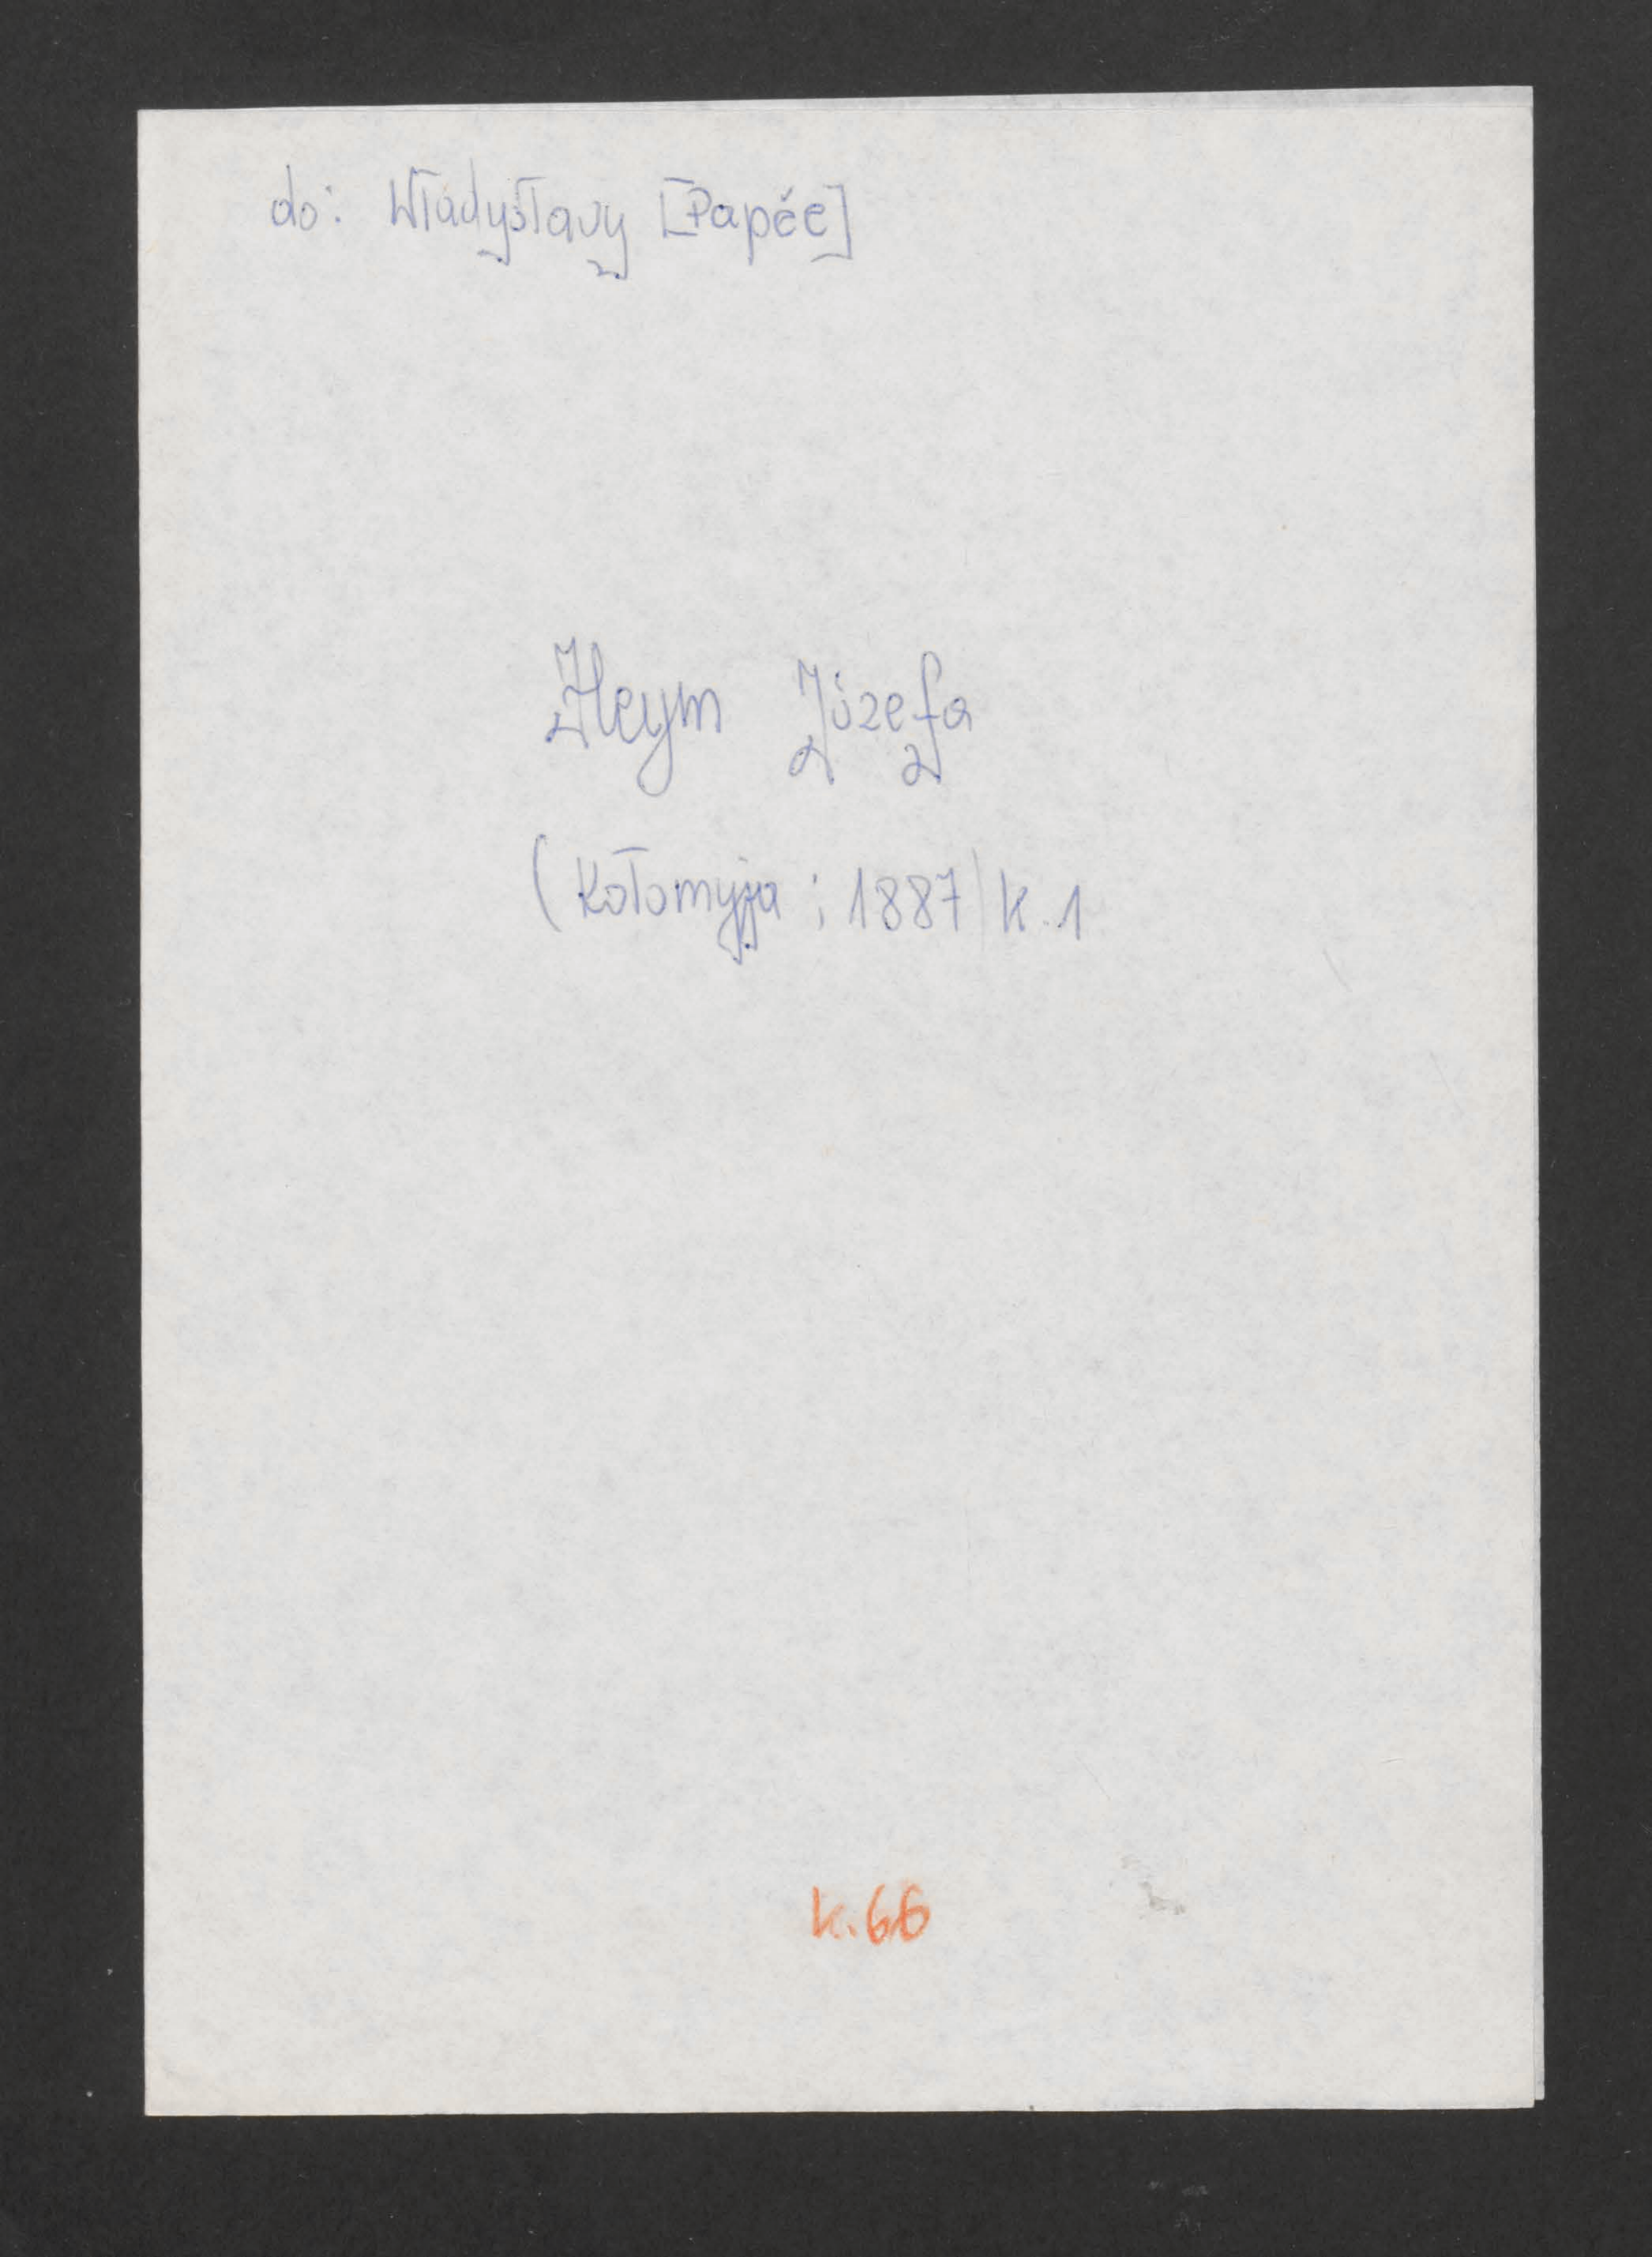 do: Władysławy [Papée]
Heym Józefa
(Kołomyja; 1887) k. 1
k. 66